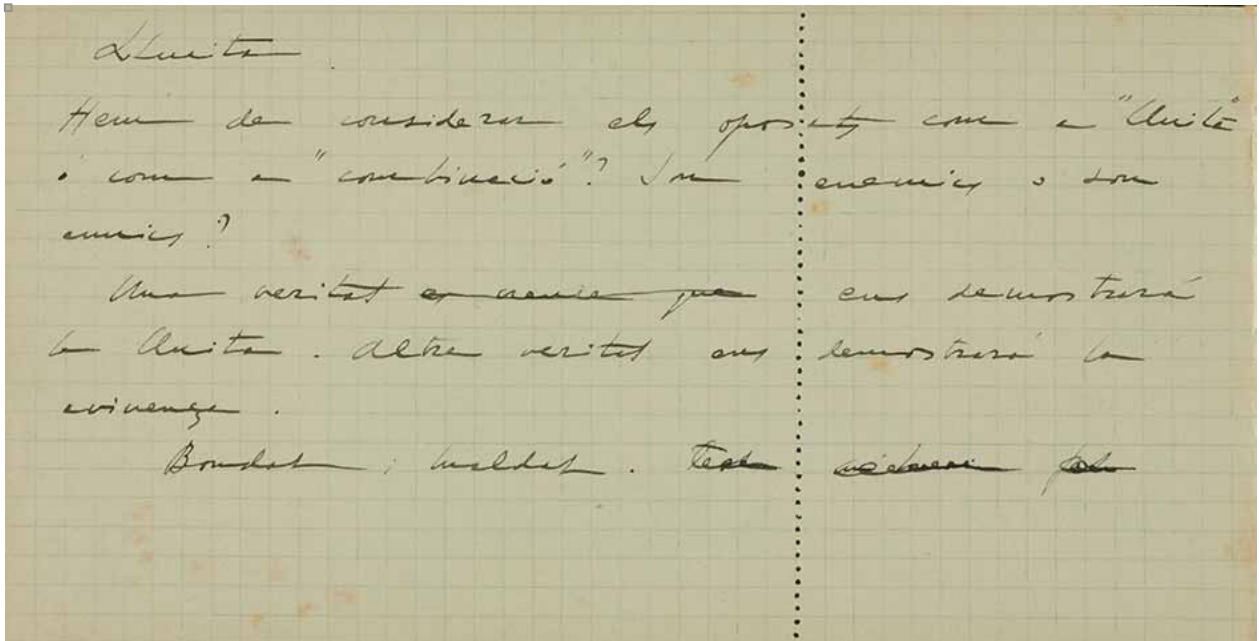 Lluita
Hem de considerar els oposats com a "lluita"
ó com a "combinació"? Son enemics o son
amics?
Una veritat es creure que ens demostrará
la lluita. Altra veritat ens demostrará la
avinença.
Bondat i maldat.